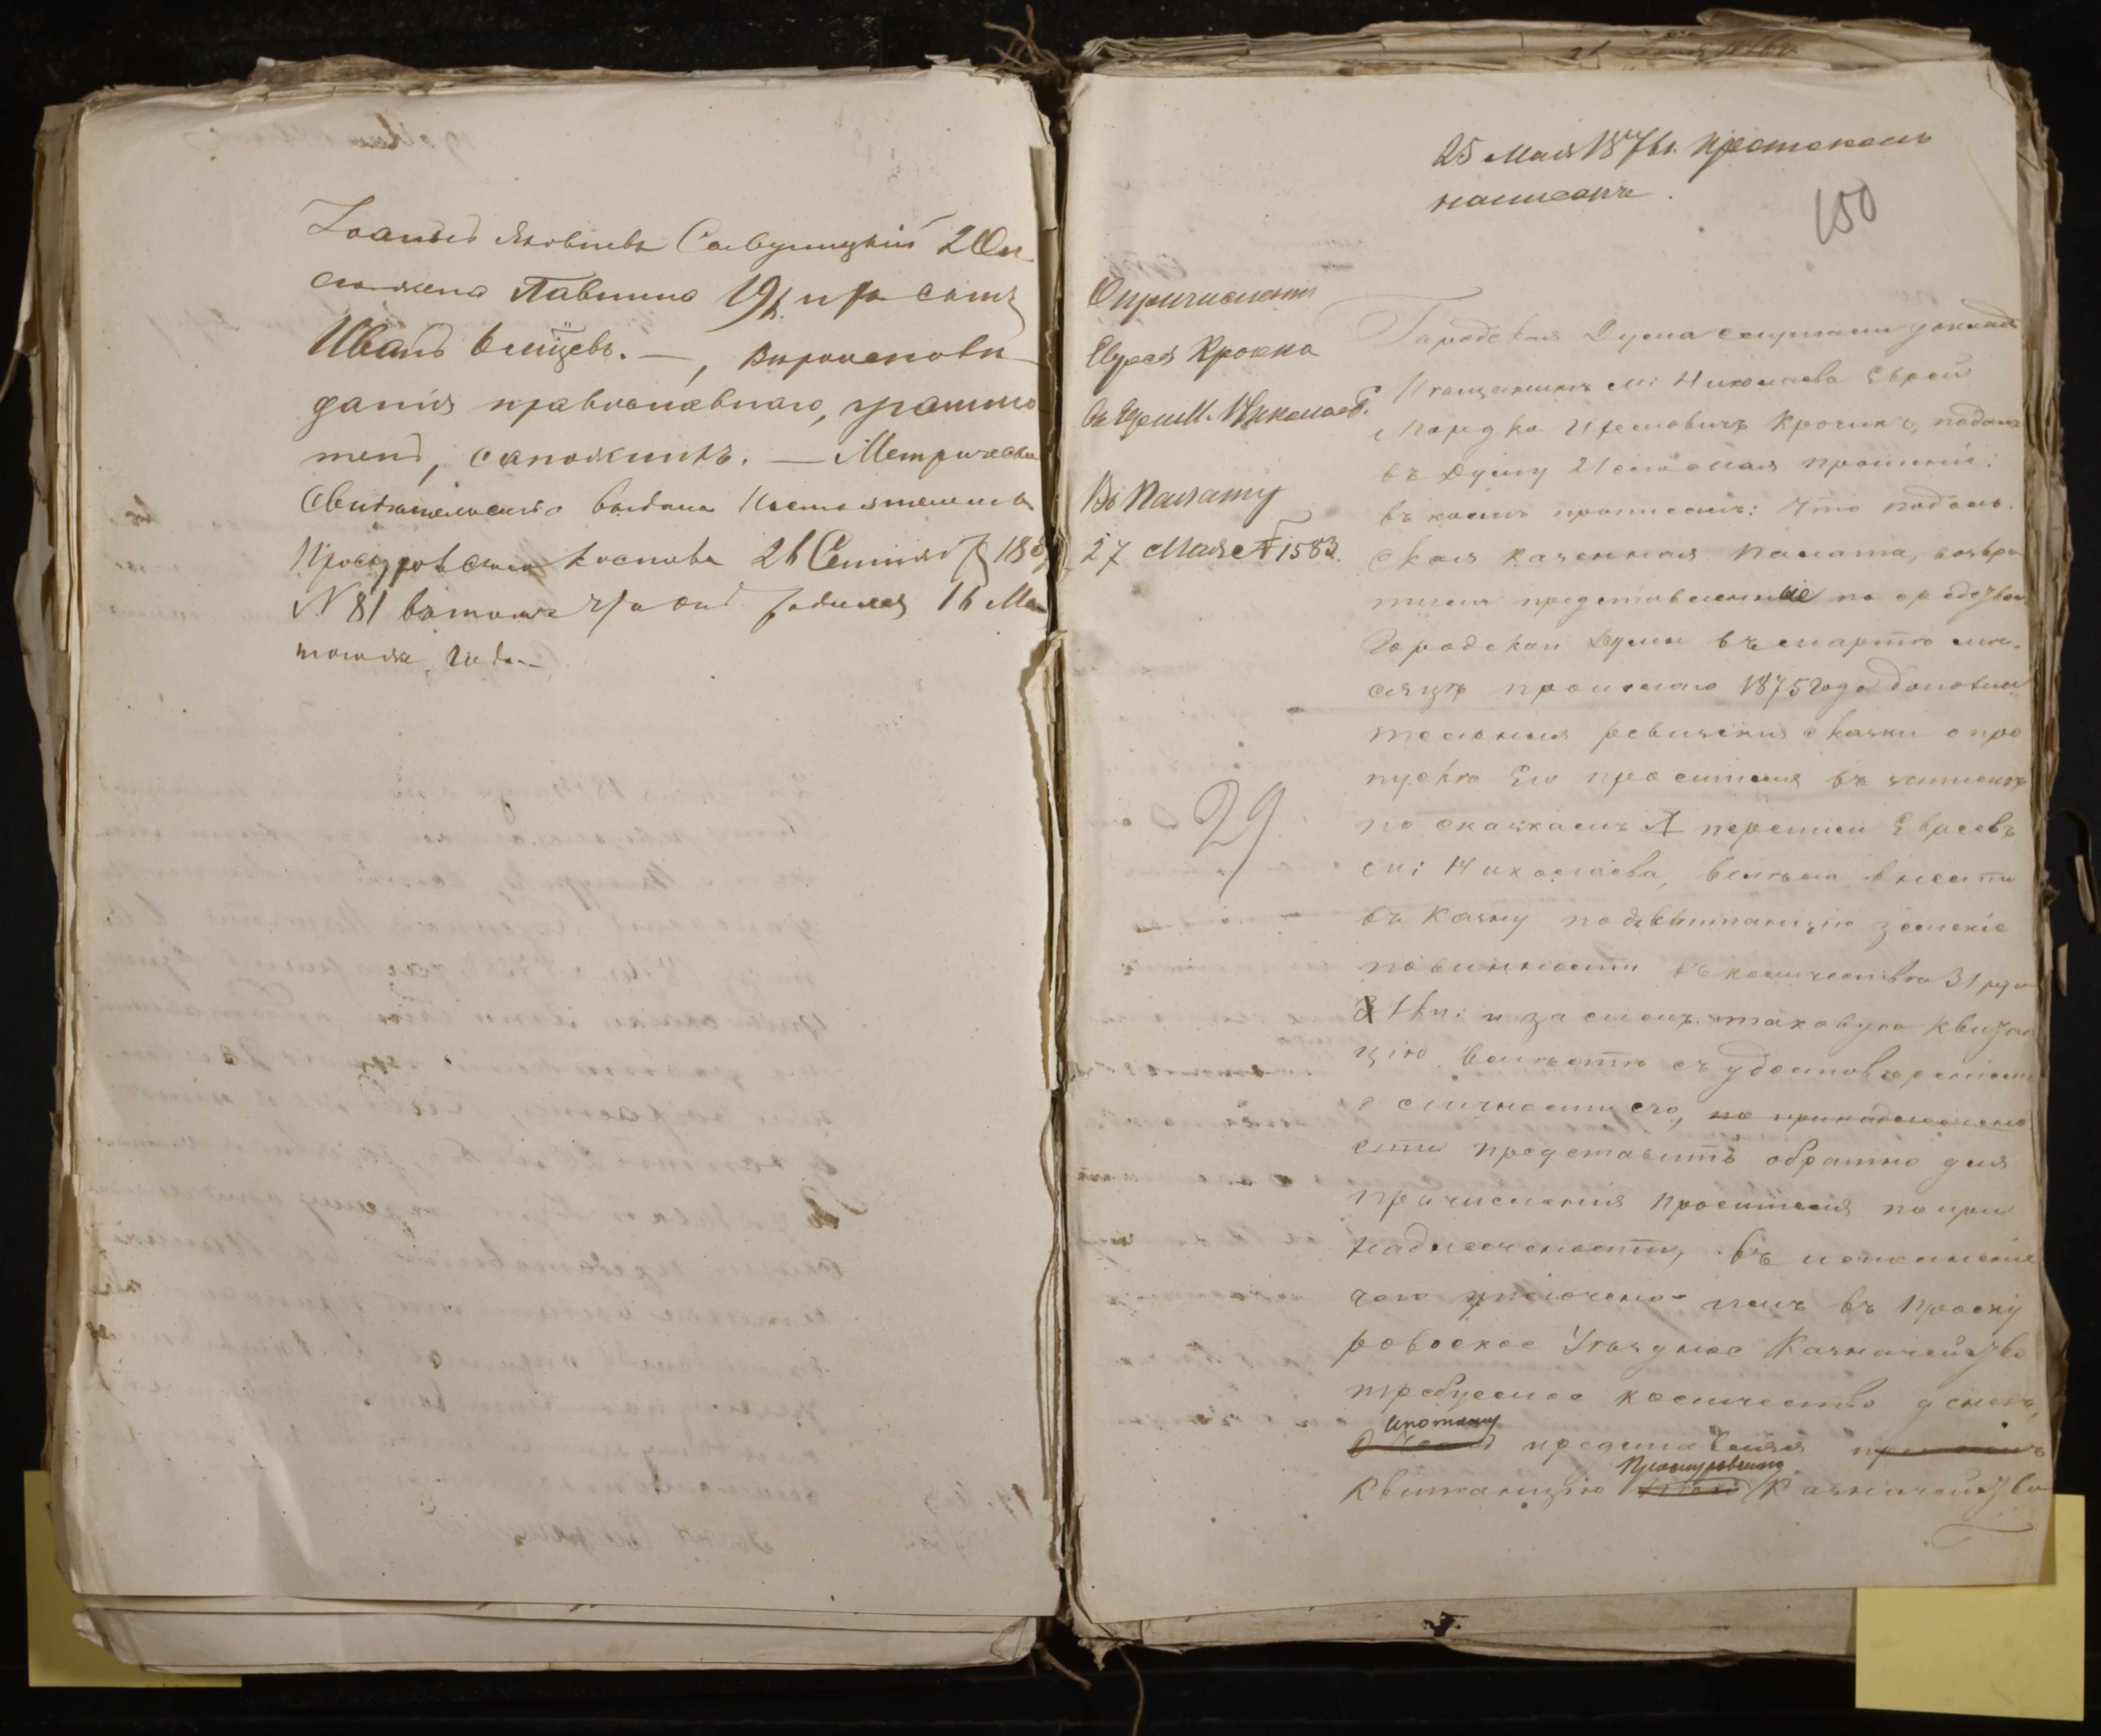 Іоаннъ Яковлевъ Савулицкій 20 л.
его жена Павлина 19 л. и ихъ сынъ
Иванъ 6 мѣсяцевъ. — , вѣроисповѣ
данія православнаго, грамо
тенъ, сапожникъ. — Метрическое
свидѣтельство выдано Настоятелемъ
Проскуровскаго 26 Сентября
№ 81 въ томъ что онъ родился 16 Ма
того же года. —
25 Мая 1876 г. Протоколъ
написанъ.
150
О причисленіи
Еврея Крочка
въ Мѣщ. м. Николаев.
Въ Палату
27 Мая № 1583.
29
Городская Дума слушали докладъ
Мѣщанинъ м: Николаева Еврей
Мордко Ицковичъ Крочикъ, подалъ
въ Думу 21 сего мая прошеніе,
въ коемъ прописалъ: что Подоль-
ская Казенная Палата, возвра
тила представленные по средствомъ
Городской Думы въ мартѣ мѣ-
сяцѣ прошлаго 1875 года дополни
тельныя ревизскія сказки о про
пускѣ Его просителя въ
по сказкамъ X переписи Евреевъ
м: Николаева, велѣла внести
въ Казну подъ квитанцію земскіе
повинности въ количествѣ 31 руб
16 к: и за симъ таковую квитан
цію вмѣстѣ съ удостовѣреніемъ
о личности его, по принадлежно
сти представить обратно для
причисленія просителя по при
надлежности, въ исполненіе
чего уплочено имъ въ Проску
ровское Уѣздное Казначейство
требуемое количество денегъ,
и потому
представляя
Проскуровскаго
квитанцію Казначейства